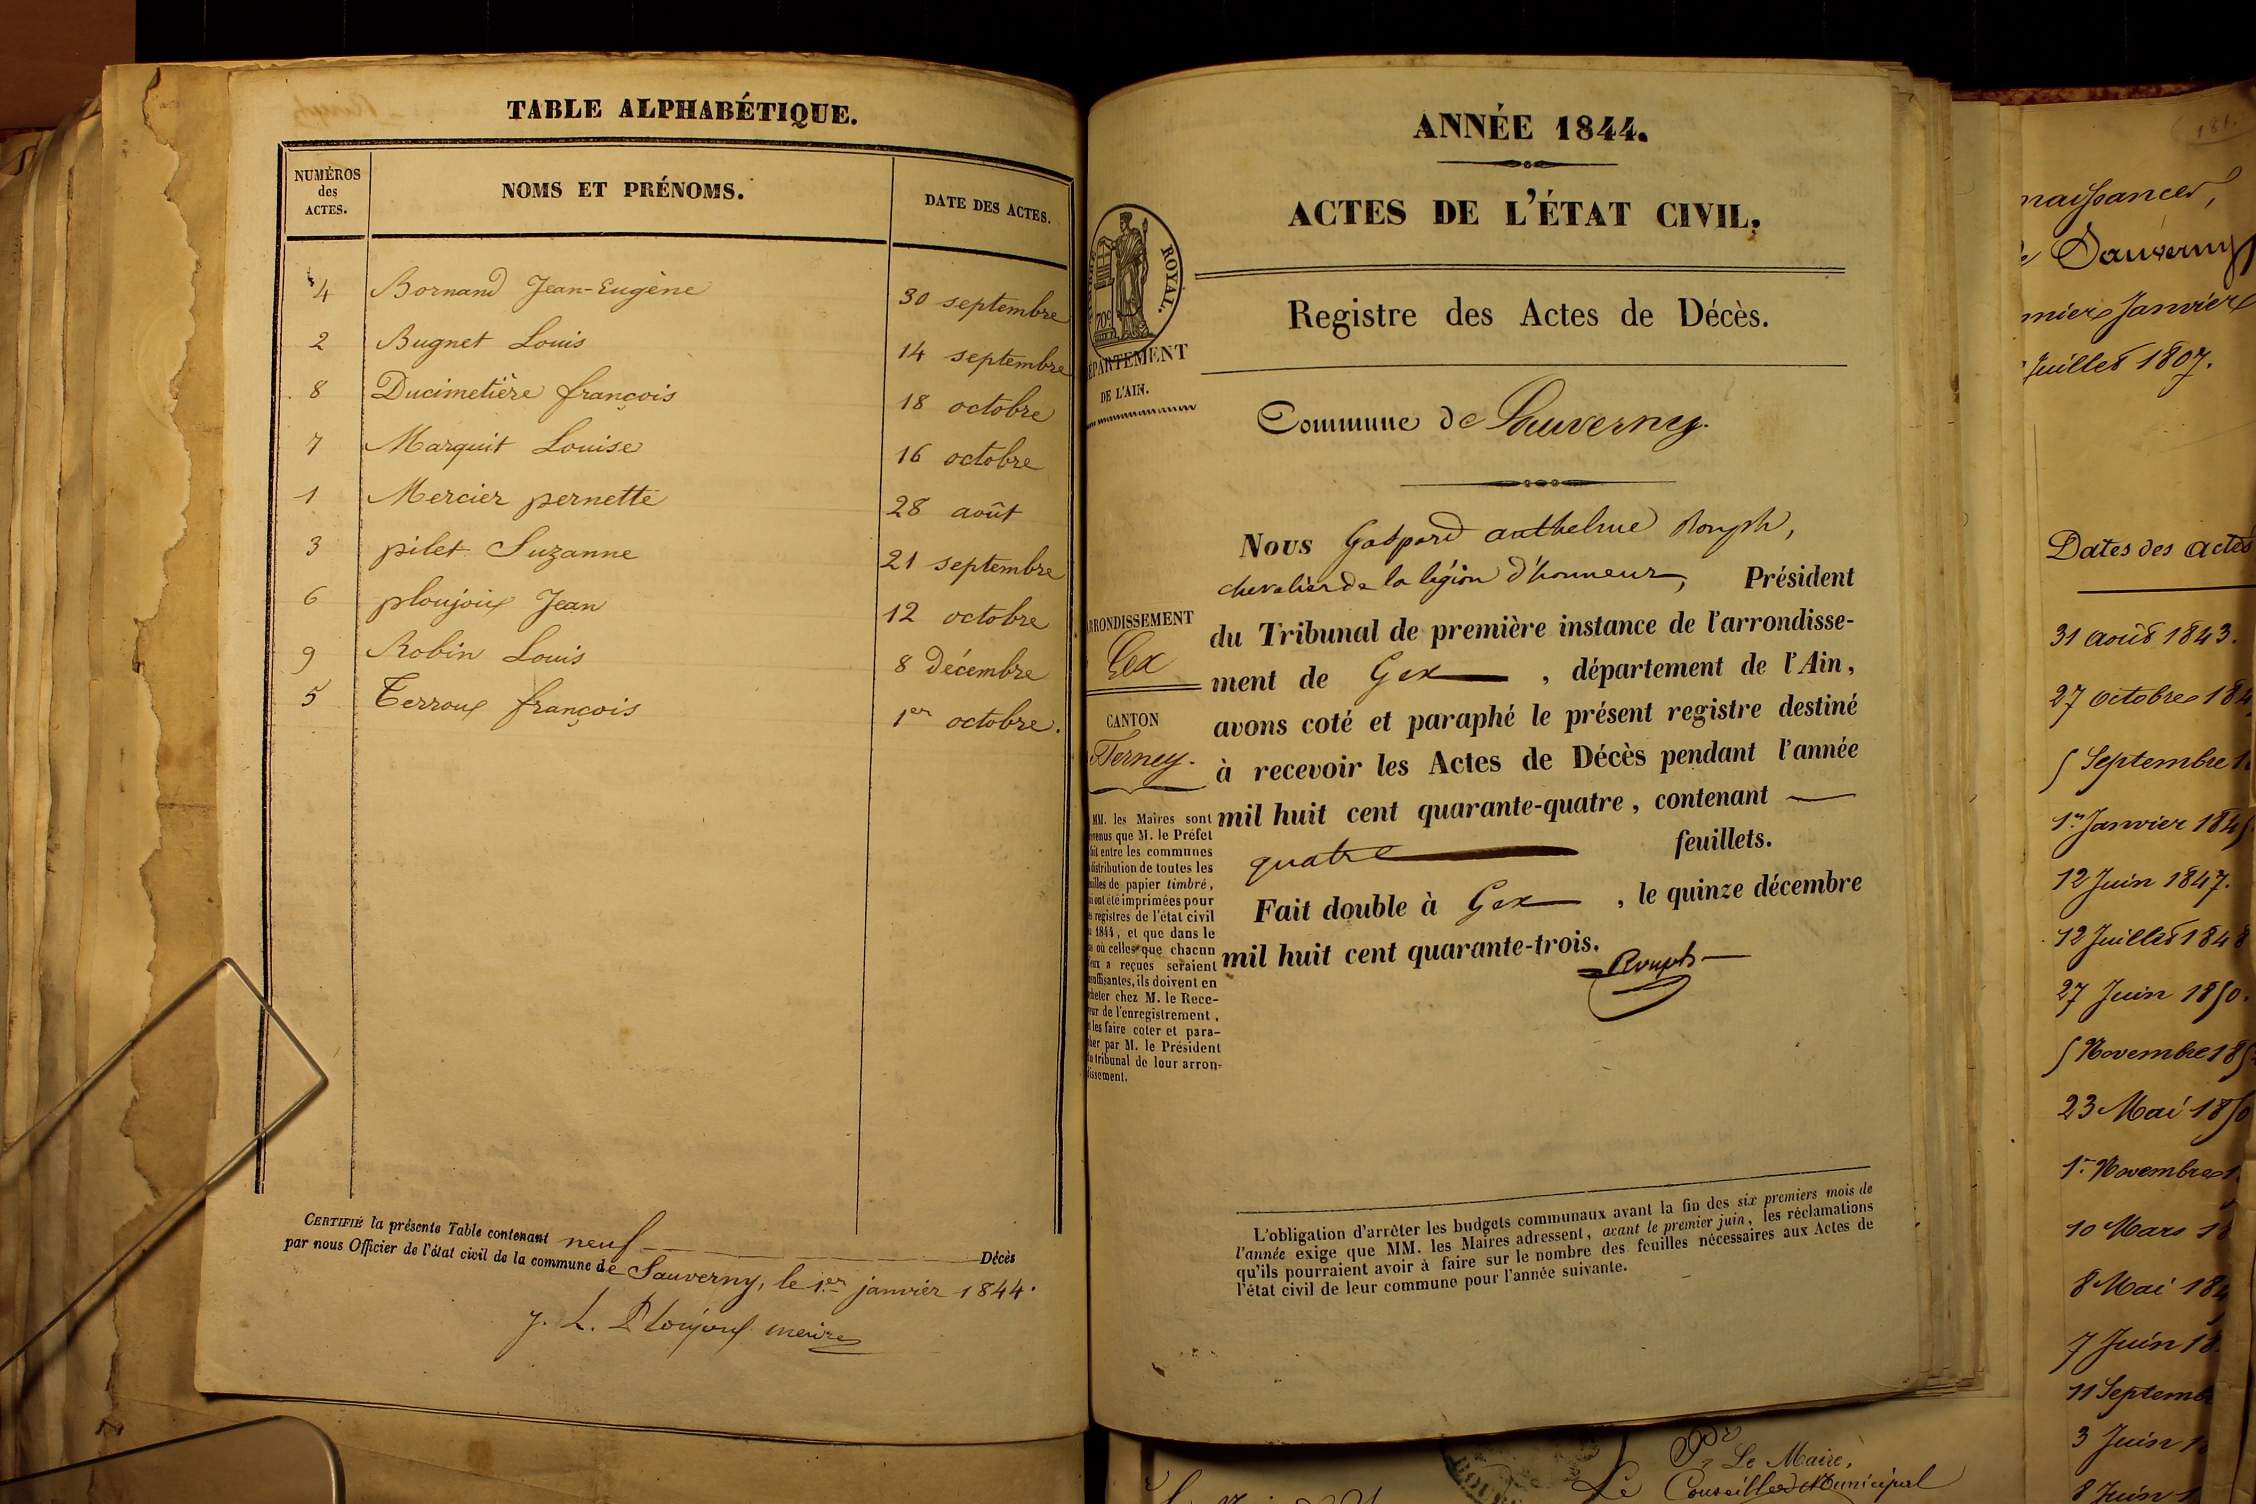 TABLE ALPHABÉTIQUE.
NUMÉROS des ACTES. NOMS ET PRÉNOMS. DATE DES ACTES.
4 Bornand Jean-Eugène 30 septembre
2 Bugnet Louis 14 septembre
8 Ducimetière françois 18 octobre
7 Marquit Louise 16 octobre
1 Mercier pernette 28 août
3 pilet Suzanne 21 septembre
6 ploujoux Jean 12 octobre
9 Robin Louis 8 décembre
5 Terroux françois 1er octobre.
CERTIFIÉ la présente Table contenant neuf Décès
par nous Officier de l'état civil de la commune de Sauverny, le 1er janvier 1844.
J. L. Ploujoux maire
ANNÉE 1844.
ACTES DE L'ÉTAT CIVIL.
ROYAL.
70c
DÉPARTEMENT
DE L'AIN.
Registre des Actes de Décès.
Commune de Sauverney.
ARRONDISSEMENT
Gex
CANTON
Ferney.
MM. les Maires sont
venus que M. le Préfet
fait entre les communes
distribution de toutes les
feuilles de papier timbré,
ont été imprimées pour
registres de l'état civil
1844, et que dans le
où celles que chacun
d'eux a reçues seraient
insuffisantes, ils doivent en
acheter chez M. le Rece-
veur de l'enregistrement,
les faire coter et para-
pher par M. le Président
du tribunal de leur arron-
dissement.
Nous Gaspard anthelme Rouph,
chevalier de la légion d'honneur, Président
du Tribunal de première instance de l'arrondisse-
ment de Gex, département de l'Ain,
avons coté et paraphé le présent registre destiné
à recevoir les Actes de Décès pendant l'année
mil huit cent quarante-quatre, contenant
quatre feuillets.
Fait double à Gex, le quinze décembre
mil huit cent quarante-trois.
Rouph
L'obligation d'arrêter les budgets communaux avant la fin des six premiers mois de
l'année exige que MM. les Maires adressent, avant le premier juin, les réclamations
qu'ils pourraient avoir à faire sur le nombre des feuilles nécessaires aux Actes de
l'état civil de leur commune pour l'année suivante.
Le Maire,
Le Conseiller Municipal
181.
naissances,
Sauverny
Janvier
Juillet 1807.
Dates des actes
31 août 1843.
27 octobre 184
5 Septembre 1
1er Janvier 1845
12 Juin 1847.
12 Juillet 1848
27 Juin 1850.
5 Novembre 185
23 Mai 1850
1er Novembre 1
10 Mars 18
8 Mai 184
7 Juin 18
11 Septemb
3 Juin 1
8 Juin 1